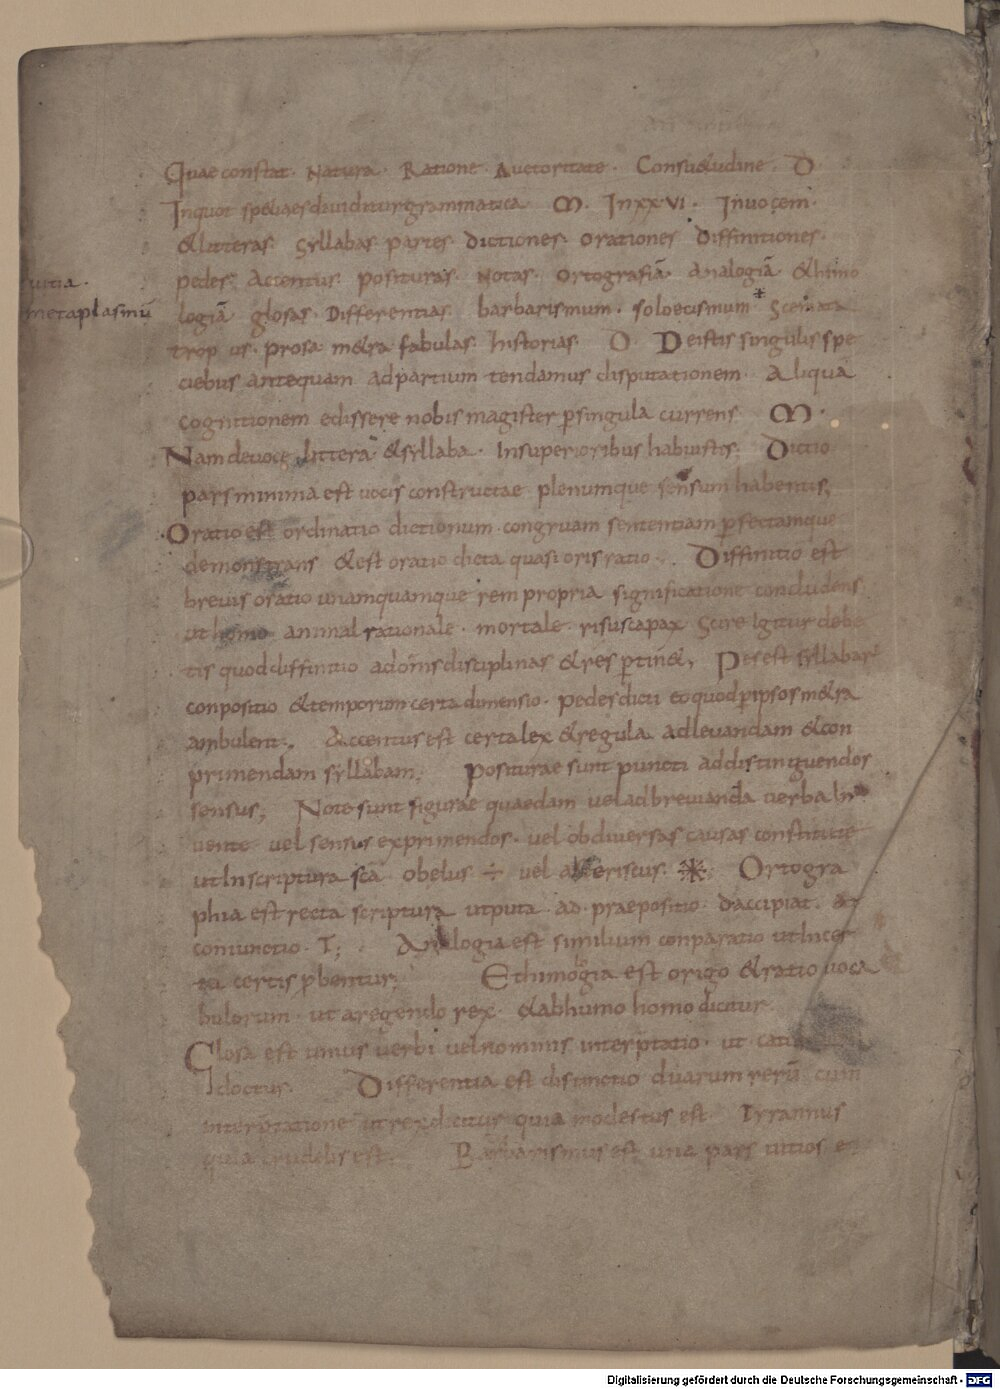 Quae constat · Natura · Ratione · Auctoritate · Consu&udine · D
Inquot species diuiditur grammatica M · In xx·vi · In uocem ·
& litteras · Syllabas · partes · Dictiones · orationes · Diffinitiones ·
pedes · Accentus · posituras · Notas · ortografiā · Analogiā · & himo
uitia ·
metaplasmū
logiā · glosas · Differentias · barbarismum · soloecismum · Scemata
tropus · prosa · m&ra fabulas · Instorias · D · De istis singulis spe
ciebus antequam ad partium tendamus disputationem · Aliquā
cognitionem edissere nobis magister p singula currens M ·
Nam de uoce littera & syllaba · In superioribus habuistis; Dictio
pars minima est uocis constructae plenumque sensum habentis;
Oratio est ordinatio dictionum · congruam sententiam pfectamque
demonstrans & est oratio dicta quasi oris ratio · Diffinitio est
breuis oratio unamquamque rem propria significatione concludens
ut homo animal rationale · mortale · risus capax Scire Igitur debe
tis quod diffinitio ad om̄s disciplinas & res ptin&; Pes est syllabarū
conpositio & temporum certa dimensio · pedes dicti eo quod p ipsos m&ra
ambulent · Accentus est certa lex & regula ad leuandam & con
primendam syllabam; Positurae sunt puncti ad distinguendos
sensus; Note sunt figurae quaedam uel ad breuianda uerba In
uente uel sensus exprimendos · uel ob diuersas causas constitute
ut In scriptura scā obelus ÷ uel asteriscus ※; Ortogra
phia est recta scriptura utputa ad · praepositio · D accipiat · at
coniunctio · T; Analogia est similium conparatio ut Incer
ta certis pbentur; Ethimologia est origo & ratio uoca
bulorum · ut a regendo rex · & ab humo homo dicitur
Glosa est unius uerbi uel nominis interptatio · ut
I doctus · Differentia est distinctio duarum rerū cum
interptatione ut rex dicitur quia modestus est Tyrannus
quia crudelis est · Barbarismus est una pars uitiose
Digitalisierung gefördert durch die Deutsche Forschungsgemeinschaft - DFG